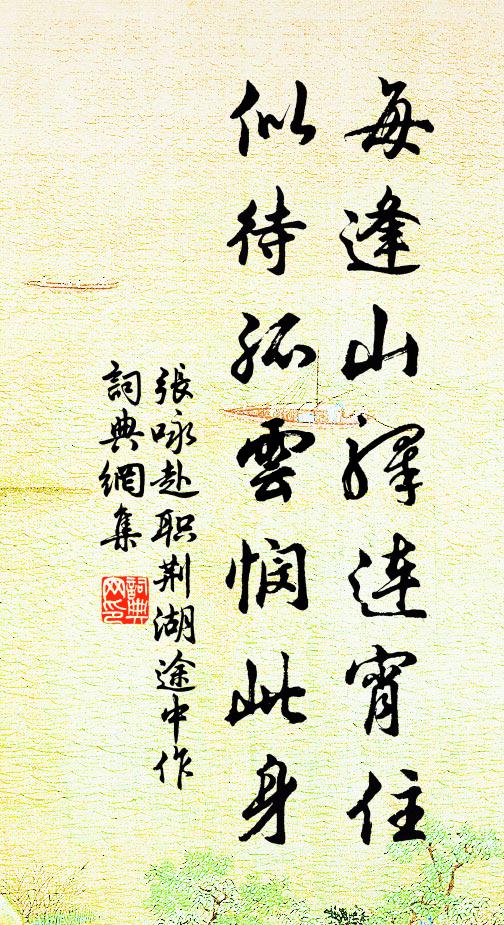 每逢山驛连宵住
似待孤雲悯此身
張咏赴职荆湖途中作
詞典網集
詞典网印